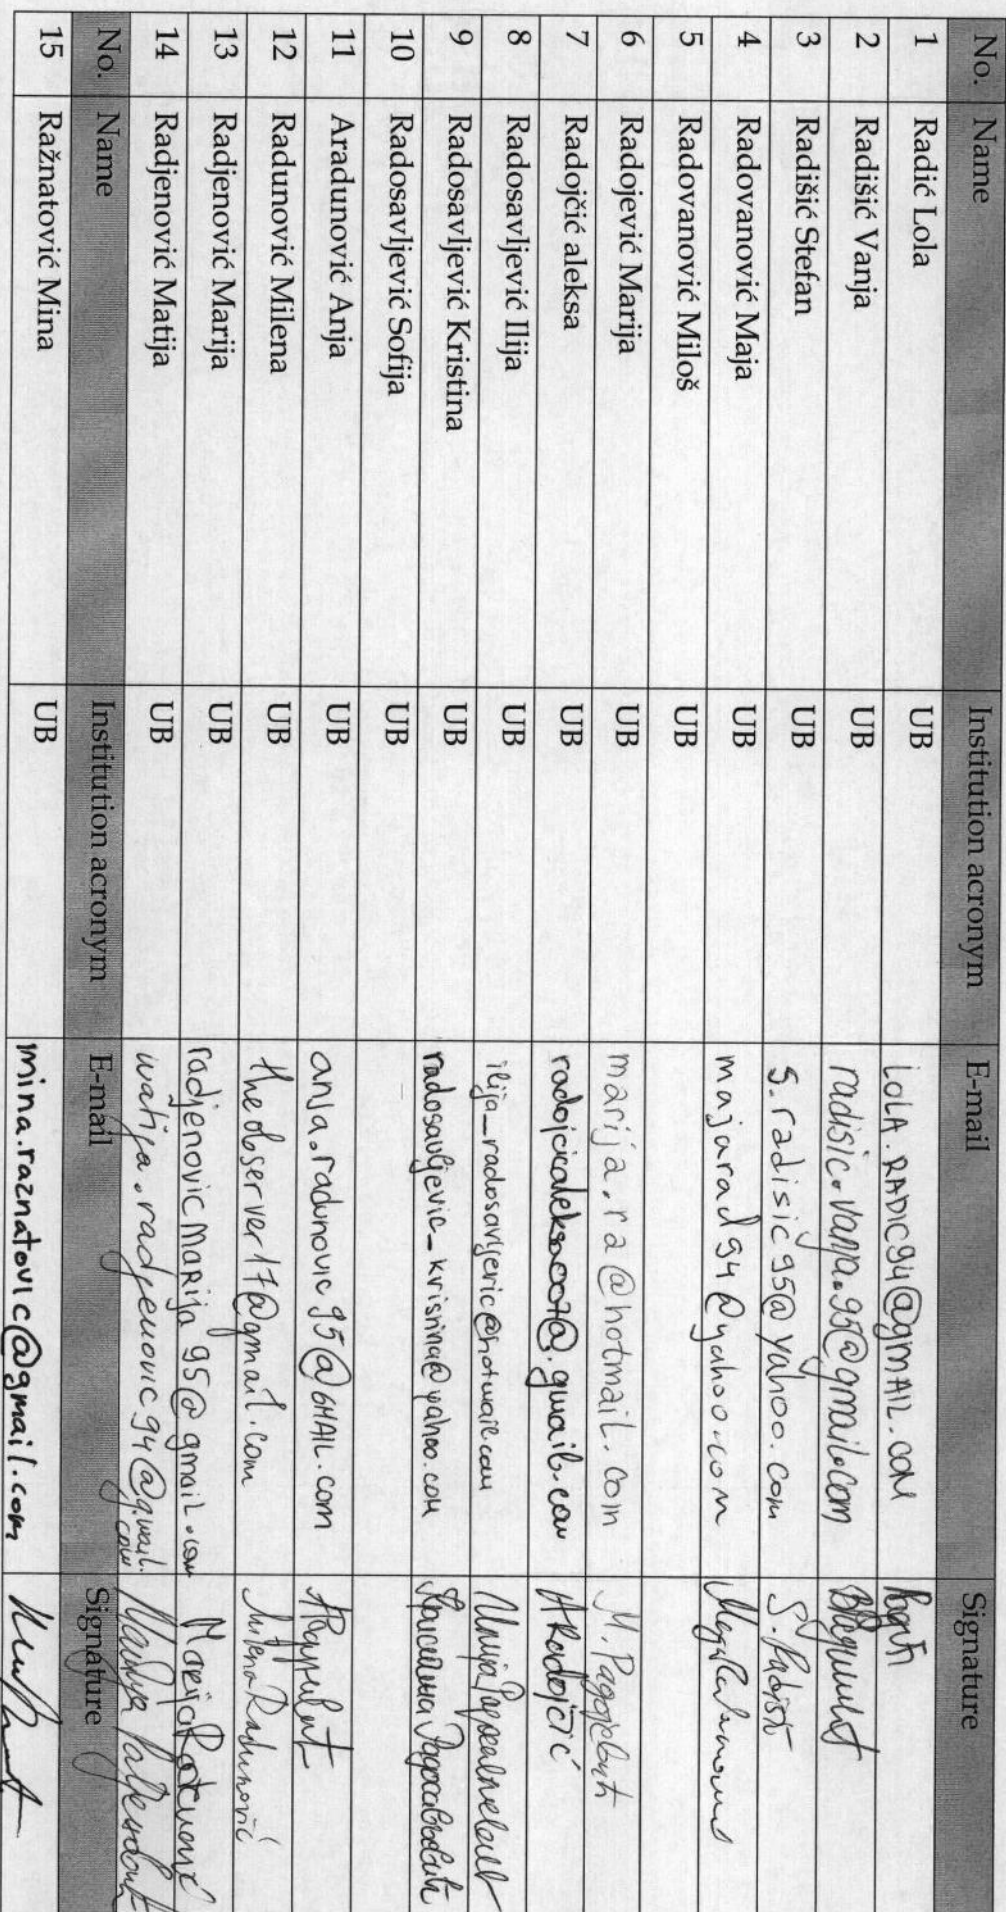 No. Name Institution acronym E-mail Signature
1 Radić Lola UB LOLA.RADIC94@GMAIL.COM
2 Radišić Vanja UB radisic.vanja.95@gmail.com
3 Radišić Stefan UB s.radisic95@yahoo.com S. Radišić
4 Radovanović Maja UB majarad94@yahoo.com
5 Radovanović Miloš UB
6 Radojević Marija UB marija.ra@hotmail.com М. Радојевић
7 Radojčić aleksa UB radojcicaleksa007@gmail.com A Radojčić
8 Radosavljević Ilija UB ilija_radosavljevic@hotmail.com Илија
9 Radosavljević Kristina UB radosavljevic_kristina@yahoo.com Кристина Радосављевић
10 Radosavljević Sofija UB
11 Aradunović Anja UB anja.radunovic95@GMAIL.com
12 Radunović Milena UB theobserver17@gmail.com Milena Radunović
13 Radjenović Marija UB radjenovicmarija95@gmail.com
14 Radjenović Matija UB matija.radjenovic94@gmail.com
No. Name Institution acronym E-mail Signature
15 Ražnatović Mina UB mina.raznatovic@gmail.com